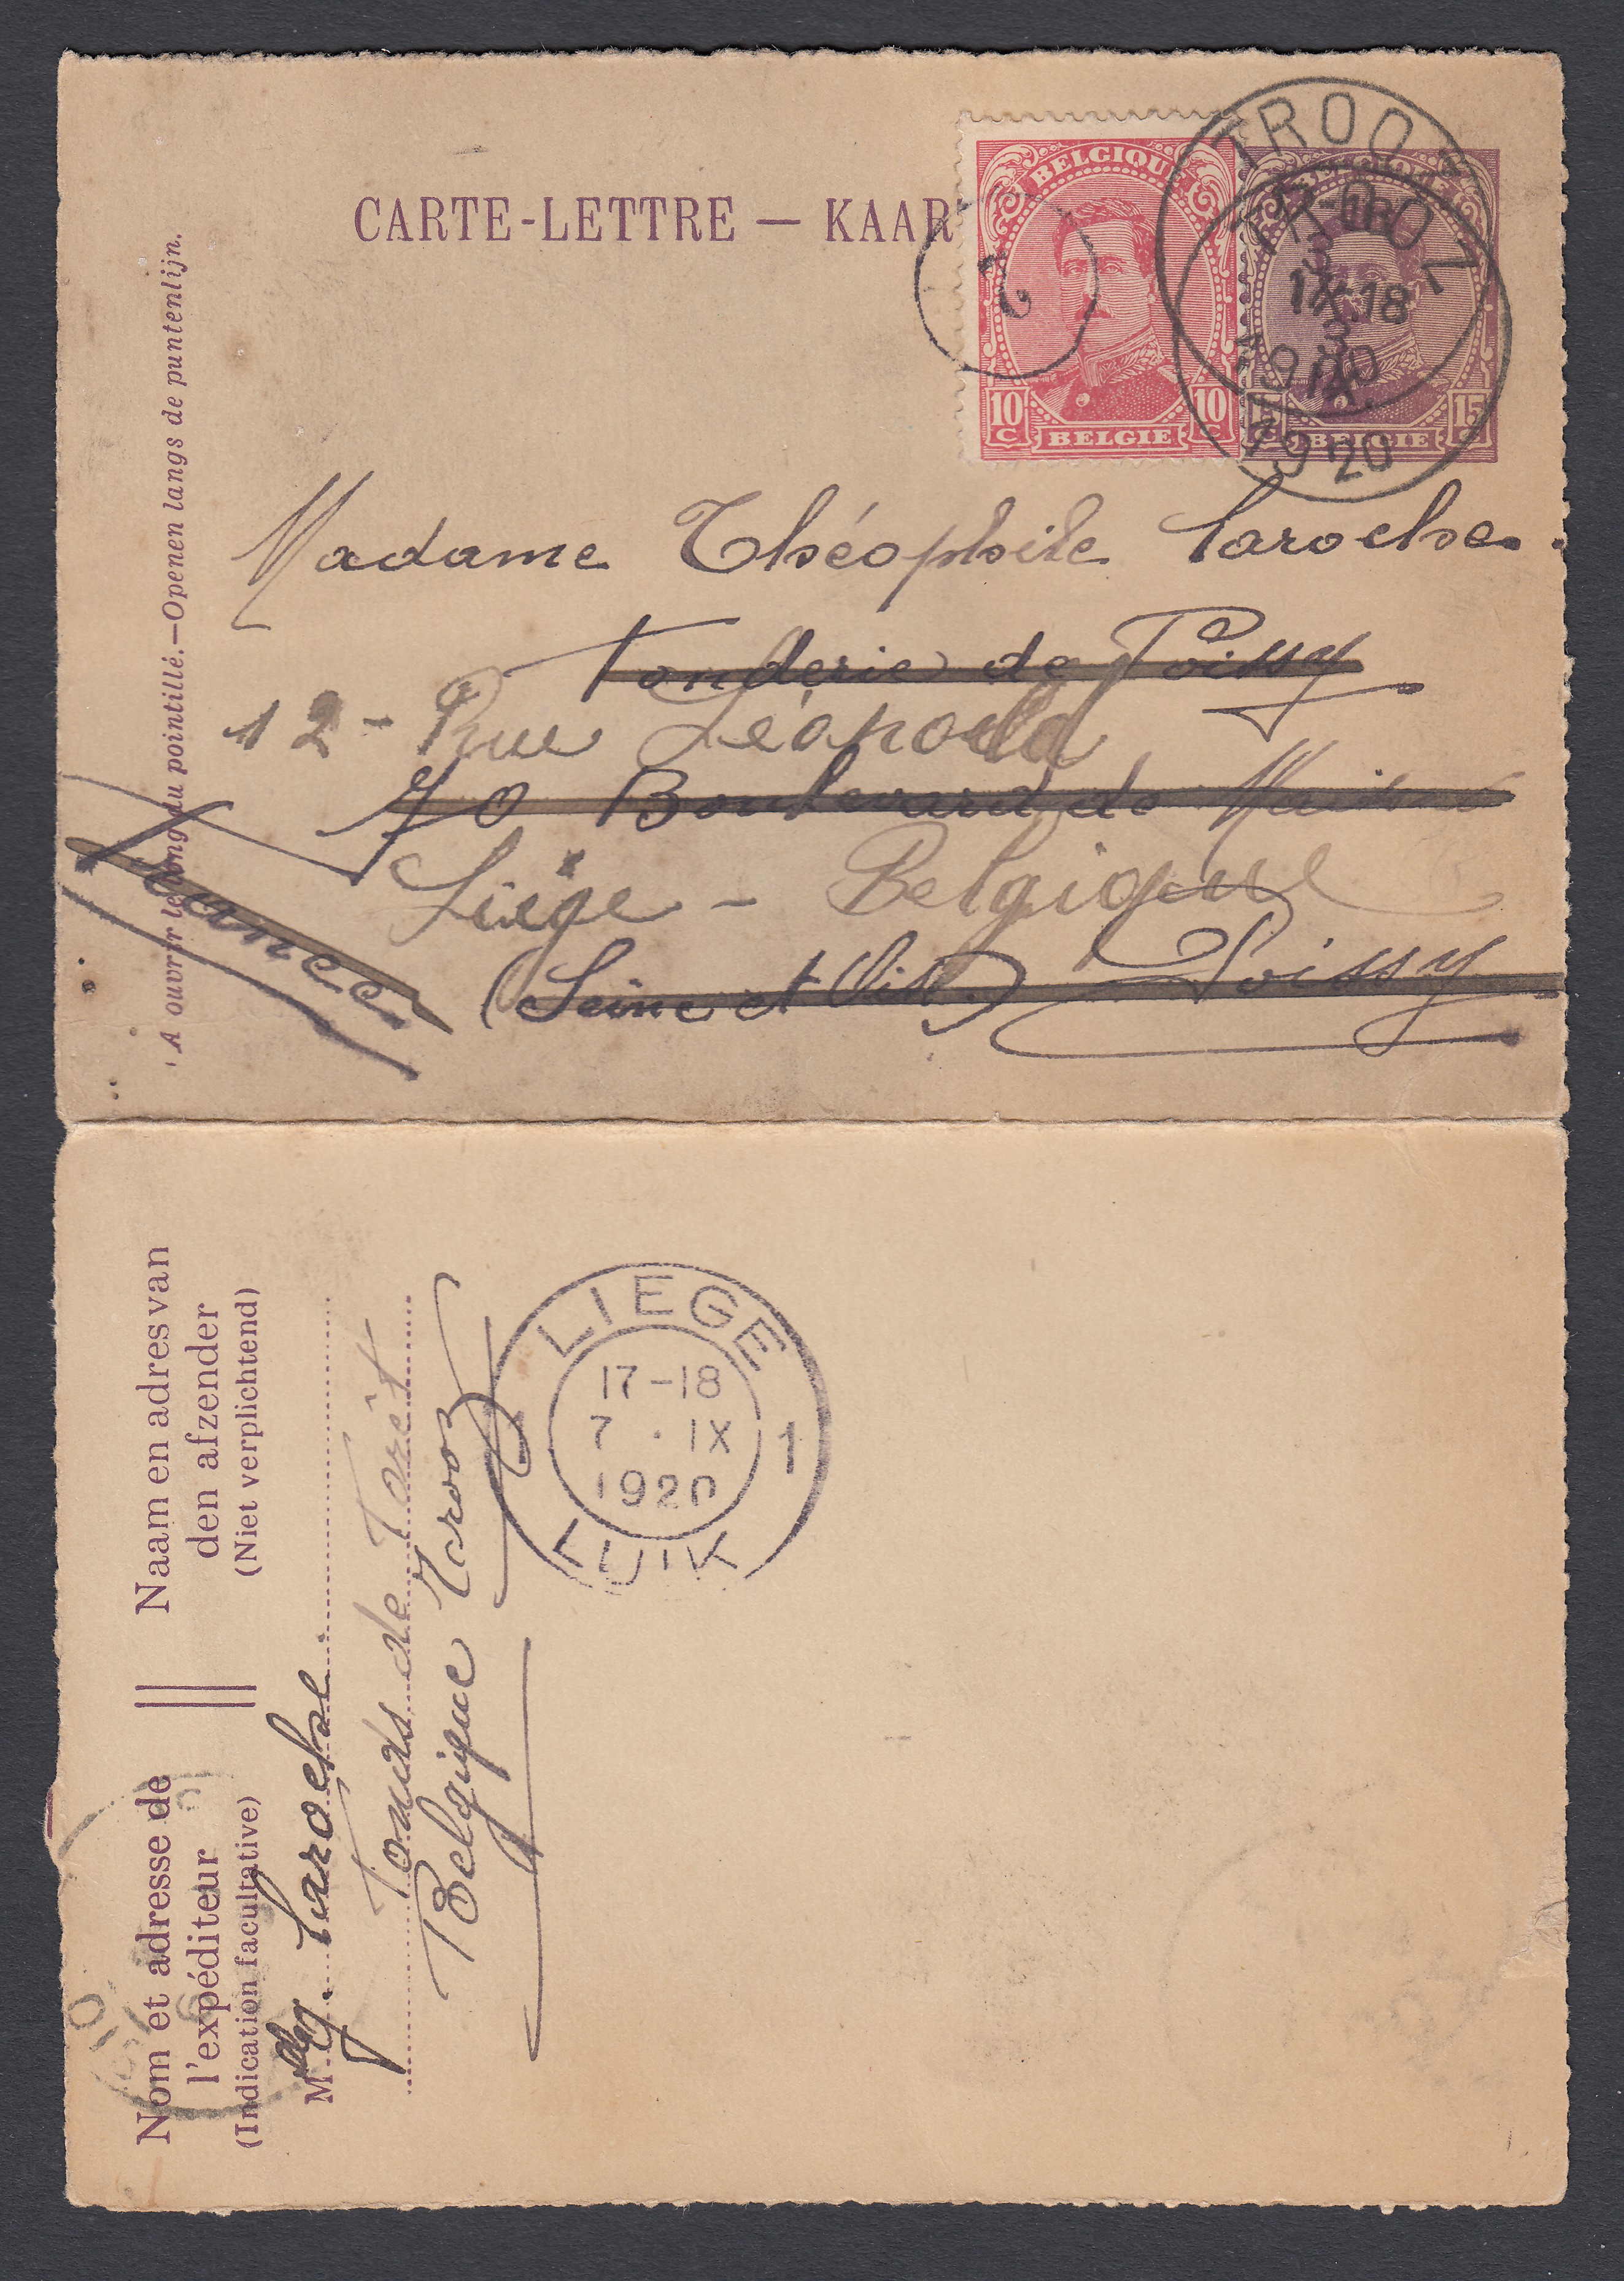 CARTE-LETTRE — KAAR
BELGIQUE
10 C
10 C
BELGIE
BELGIQUE
15 C
BELGIE
TROOZ
TROOZ
17-18
1920
1920
2
Madame Théophile Laroche.
Fonderie de Poissy
12 - Rue Léopold
70 Boulevard de
Liége - Belgique
(Seine et Oise) Poissy
France
A ouvrir le long du pointillé.—Openen langs de puntenlijn.
Naam en adres van
den afzender
(Niet verplichtend)
Nom et adresse de
l'expéditeur
(Indication facultative)
M. Laroche
Fonds de Forêt
Belgique Trooz
LIEGE 1
17-18
7 . IX
1920
LUIK